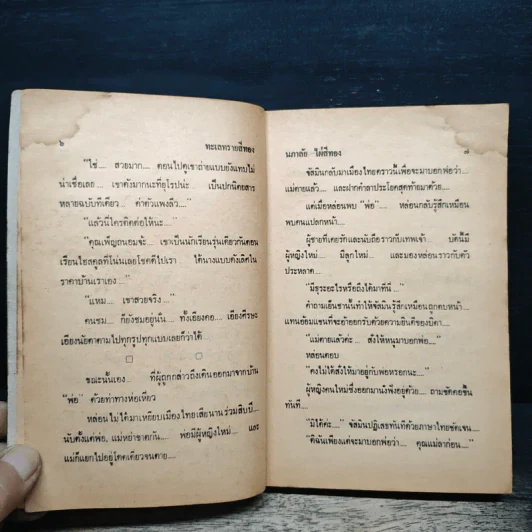 ๖ ทะเลทรายสีทอง
"ใช่.... สวยมาก.... ตอนไปดูเขาถ่ายแบบยังแทบไม่
น่าเชื่อเลย .... เขาดังมากนะที่ยุโรปน่ะ.... เป็นปกนิตยสาร
หลายฉบับทีเดียว.... ค่าตัวแพงลิ่ว...."
"แล้ววันี่ใครติดต่อให้นะ...."
"คุณเพ็ญถนอมจ้ะ.... เขาเป็นนักเรียนรุ่นเดียวกันตอน
เรียนไฮสคูลที่โน่นเลยโชคดีไปเรา.... ได้นางแบบดังเลิศใน
ราคาบ้านเราเอง...."
"แหม.... เขาสวยจริง...."
คนชม.... ก็ยังชมอยู่นั่น.... ทั้งเอียงคอ.... เอียงศีรษะ
เอียงนัยตาตามไปทุกรูปทุกแบบเลยก็ว่าได้....
ขณะนั้นเอง.... ที่ผู้ถูกกล่าวถึงเดินออกมาจากบ้าน
"พ่อ" ด้วยท่าทางห่อเหี่ยว
หล่อนไม่ได้มาเหยียบเมืองไทยเสียนานร่วมสิบปี....
นับตั้งแต่พ่อ, แม่หย่าขาดกัน.... พ่อมีผู้หญิงใหม่.... และ
แม่ก็แยกไปอยู่โดดเดี่ยวจนตาย....
นภาลัย ไผ่สีทอง ๗
จัสมินกลับมาเมืองไทยคราวนี้เพื่อจะมาบอกพ่อว่า....
แม่ตายแล้ว.... และฝากคำลาประโยคสุดท้ายมาด้วย....
แต่เมื่อหล่อนพบ "พ่อ".... หล่อนกลับรู้สึกเหมือน
พบคนแปลกหน้า....
ผู้ชายที่เคยรักและนับถือราวกับเทพเจ้า.... บัดนี้มี
ผู้หญิงใหม่.... มีลูกใหม่.... และมองหล่อนราวกับตัว
ประหลาด....
"มีธุระอะไรหรือถึงได้มาที่นี่...."
คำถามเย็นชานั้นทำให้จัสมินรู้สึกเหมือนถูกตบหน้า....
แทนอ้อมแขนที่จะอ้าออกรับด้วยความยินดีของบิดา....
"แม่ตายแล้วค่ะ.... สั่งให้หนูมาบอกพ่อ...."
หล่อนตอบ
"คงไม่ได้สั่งให้มาอยู่กับพ่อหรอกนะ...."
ผู้หญิงคนใหม่ซึ่งออกมานั่งฟังอยู่ด้วย.... ถามขัดคอขึ้น
ทันที....
"มิได้ค่ะ...." จัสมินปฏิเสธทันทีด้วยภาษาไทยชัดเจน....
"ดิฉันเพียงแต่จะมาบอกพ่อว่า.... คุณแม่ลาก่อน...."